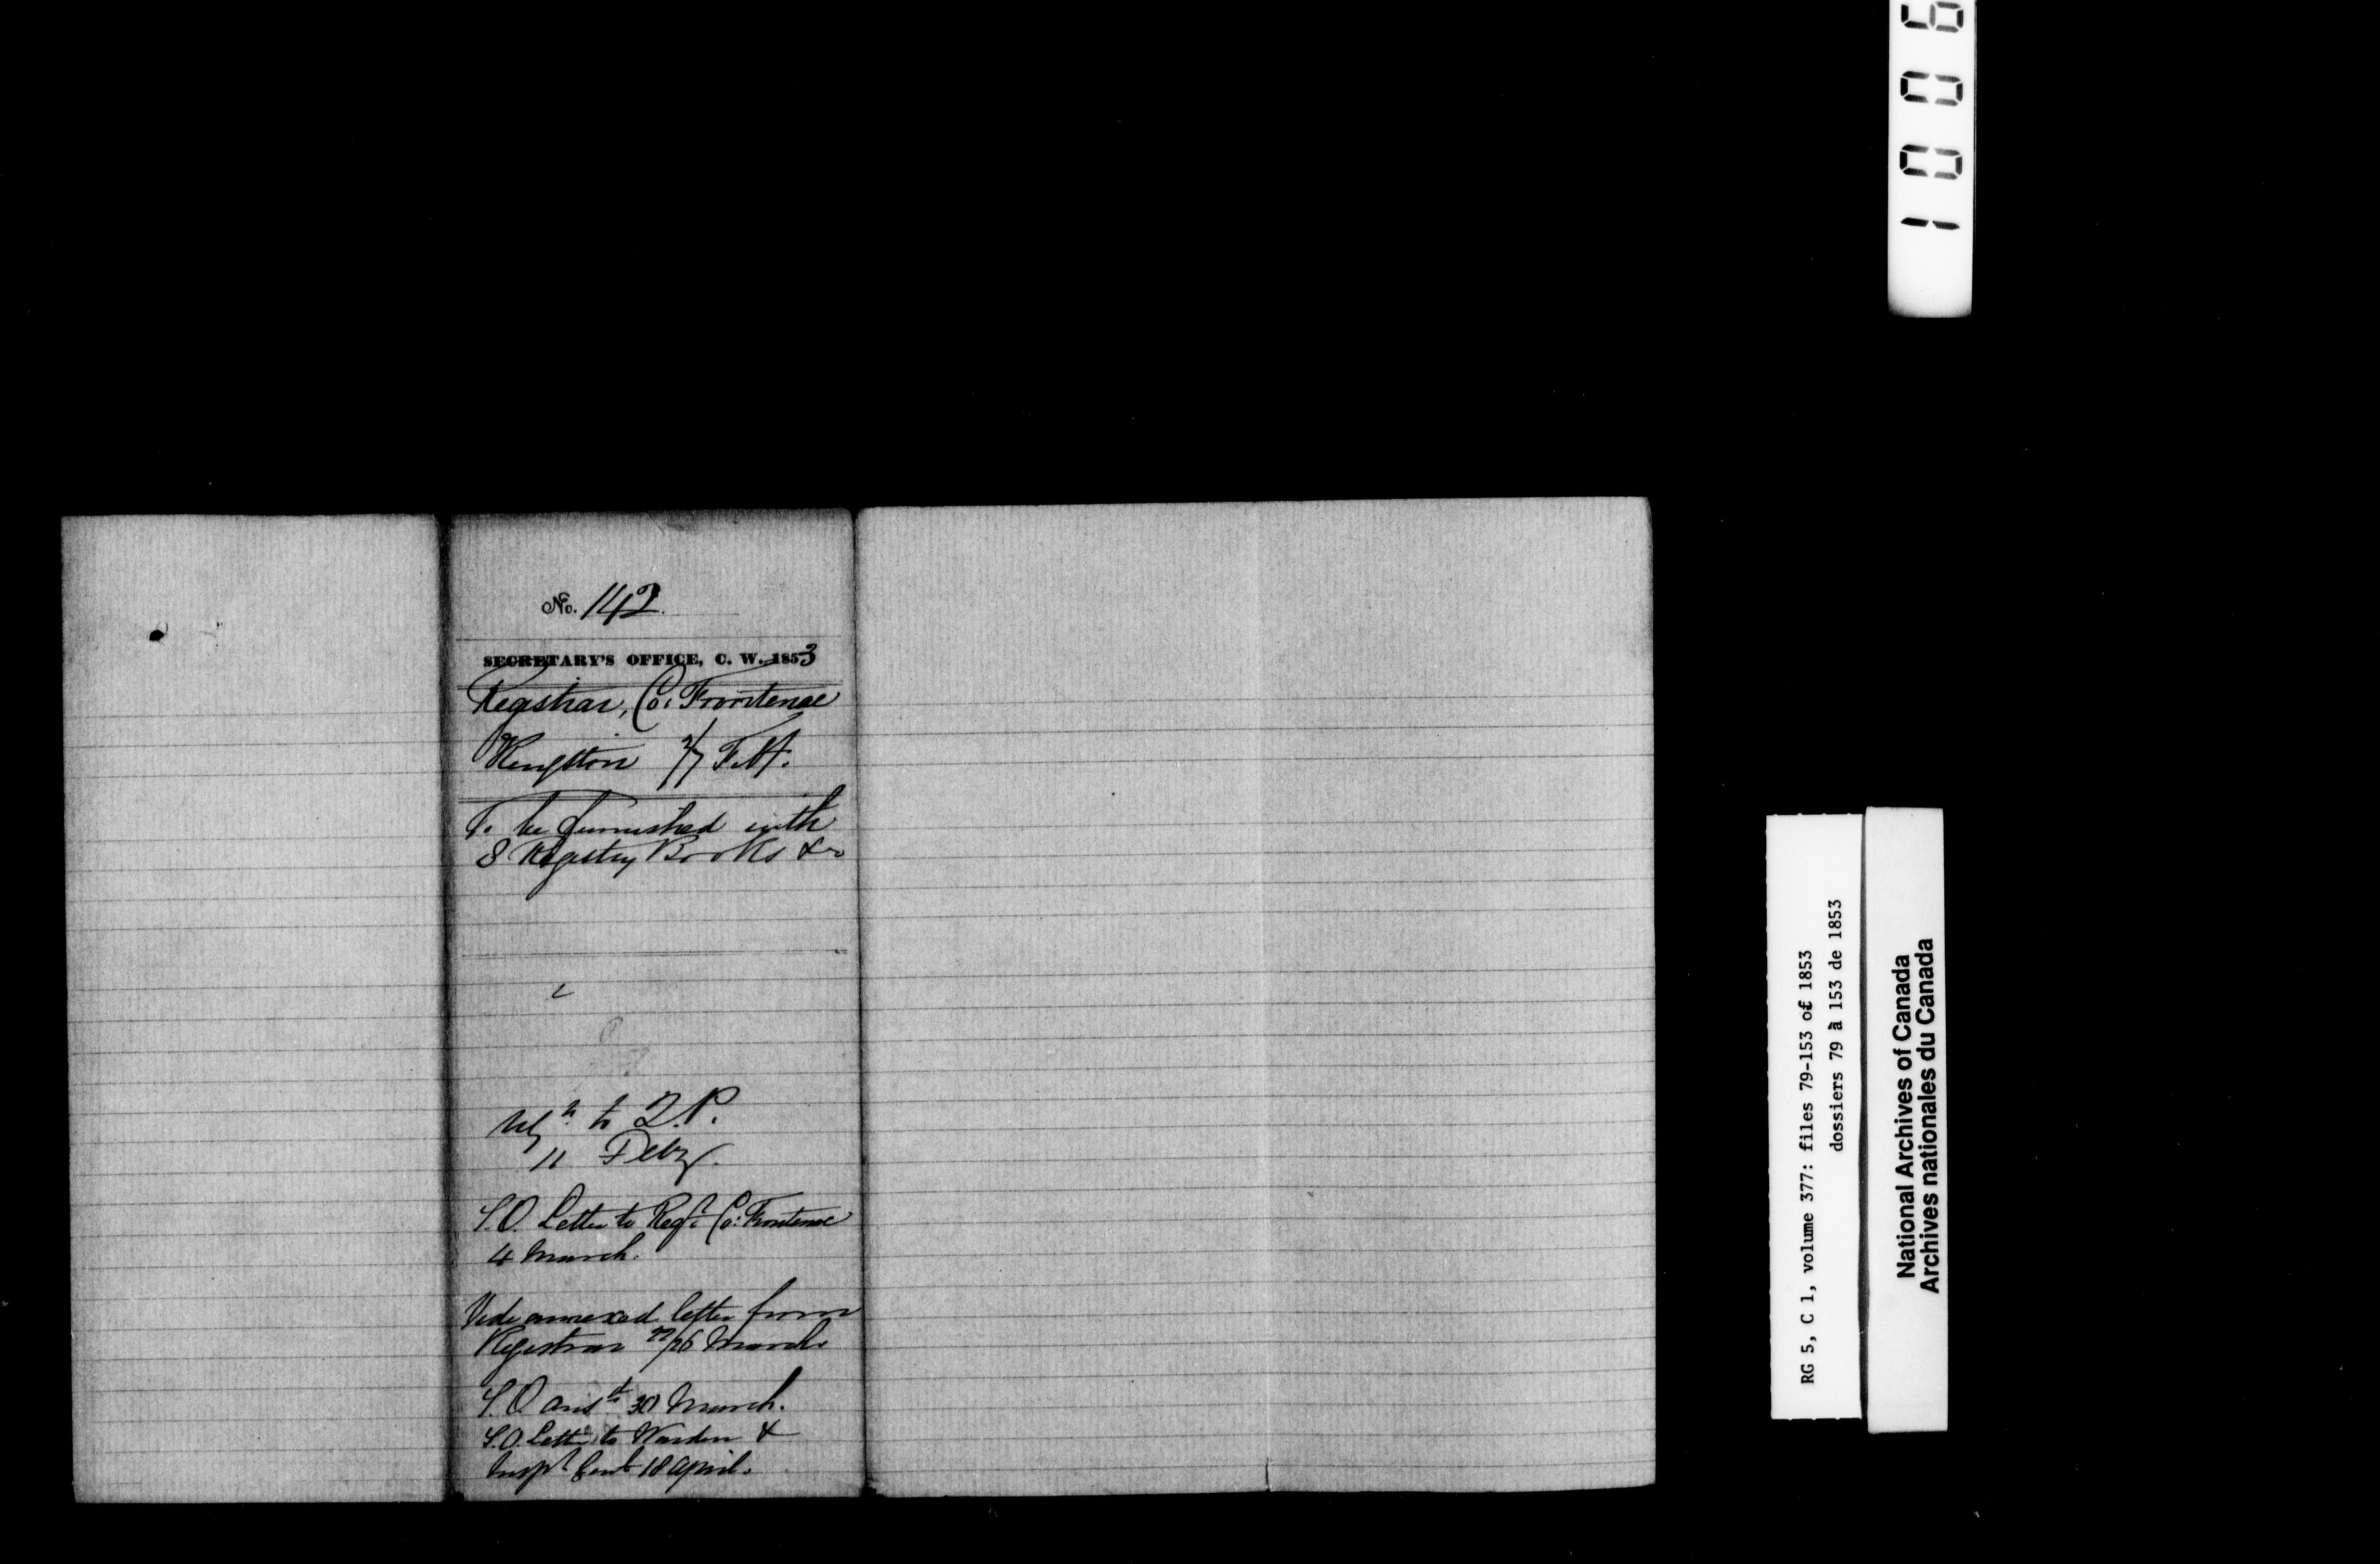 No. 142.
SECRETARY'S OFFICE, C. W. 1853
Registrar, Co: Frontenac
Kingston 2/7 Feb.
To be furnished with
8 Registry Books &c
to Q.P.
11 Feby.
S.O. Letter to Regr. Co: Frontenac
4 March.
Vide annexed letter from
Registrar 22/26 March
S.O. ansd. 30 March.
S.O. Letter to Warden &
Inspr. Genl. 18 April.
1006
RG 5, C 1, volume 377: files 79-153 of 1853
dossiers 79 à 153 de 1853
National Archives of Canada
Archives nationales du Canada